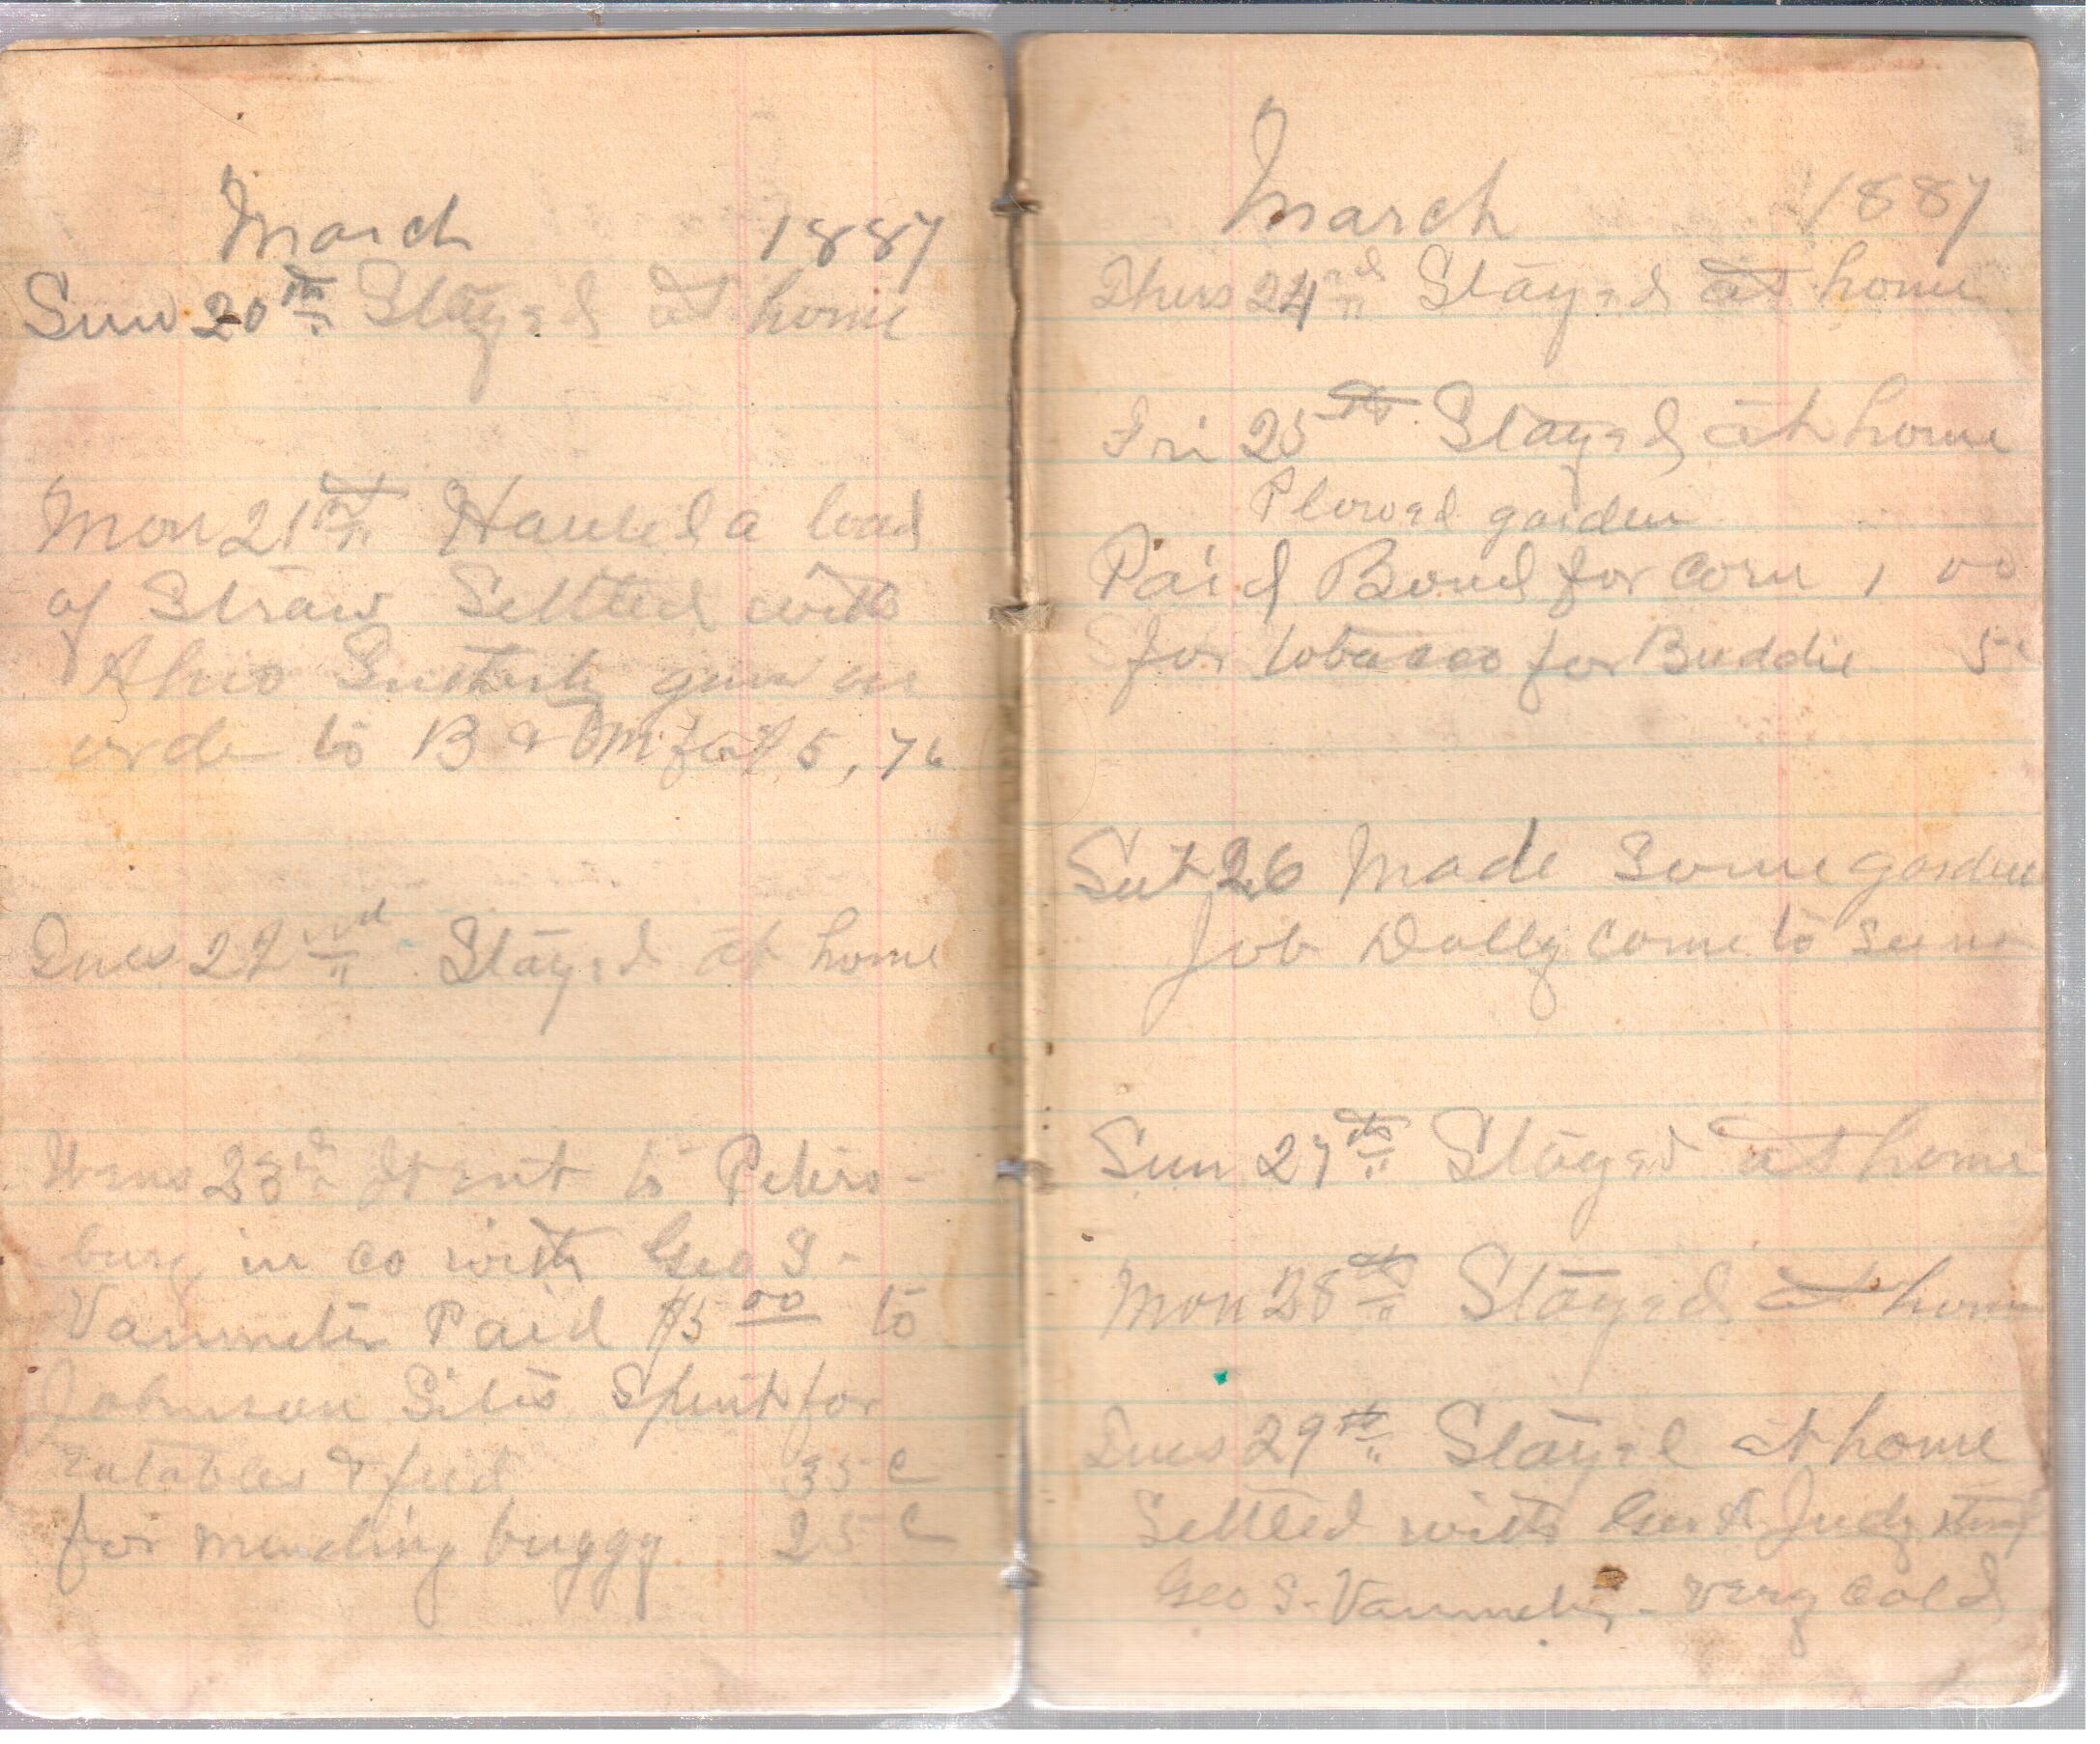 March 1887
Sun 20th Stayed at home
Mon 21st Hauled a load
of Straw Settled with
gave an
order to B & M for $5,76
Tues 22nd Stayed at home
Wens 23rd Went to Peters-
burg in co with Geo S-
Vanmeter Paid $5 00 to
Johnson Sites Spent for
eatables & feed 35 c
for mending buggy 25 c
March 1887
Thurs 24th Stayed at home
Fri 25th Stayed at home
Plowed garden
Paid Bond for corn 1 00
for tobacco for Buddie 5c
Sat 26 Made Some garden
Job Dolly come to see me
Sun 27th Stayed at home
Mon 28th Stayed at home
Tues 29th Stayed at home
Settled with Judy
Geo S- Vanmeter - very cold